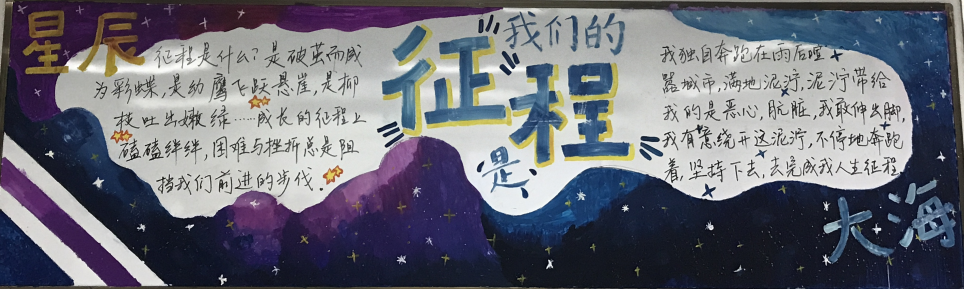 星辰
征程是什么?是破茧而成
为彩蝶,是幼鹰飞跃悬崖,是柳
枝吐出嫩绿……成长的征程上
磕磕绊绊,困难与挫折总是阻
挡我们前进的步伐.
我们的
征程
是
我独自奔跑在雨后喧
嚣城市,满地泥泞,泥泞带给
我的是恶心,肮脏,我敢伸出脚,
我有意绕开这泥泞,不停地奔跑
着,坚持下去,去完成我人生征程
大海